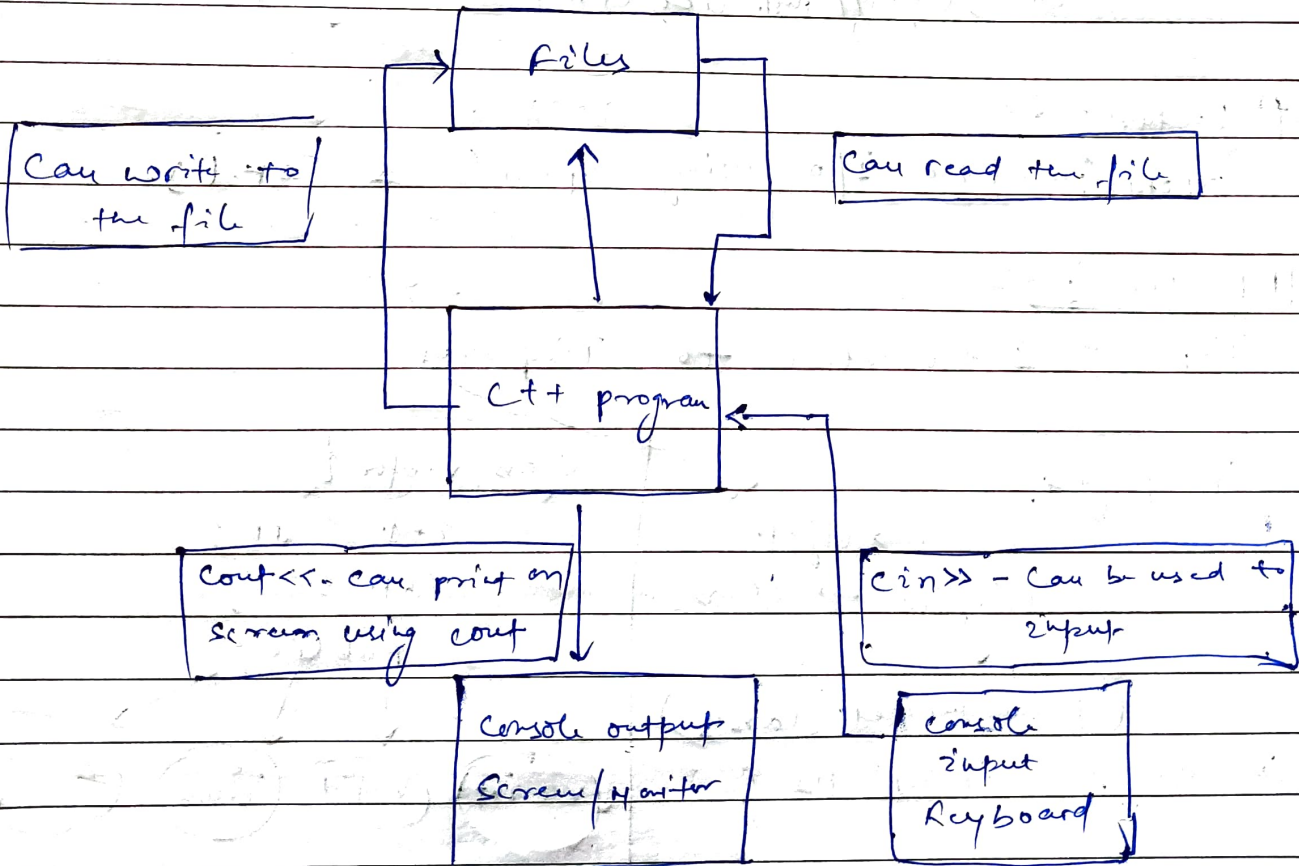 Files
Can write to
the file
Can read the file
C++ program
Cout<<- Can print on
screen using cout
Cin>> - Can be used to
input
Console output
Screen/Monitor
console
input
Keyboard